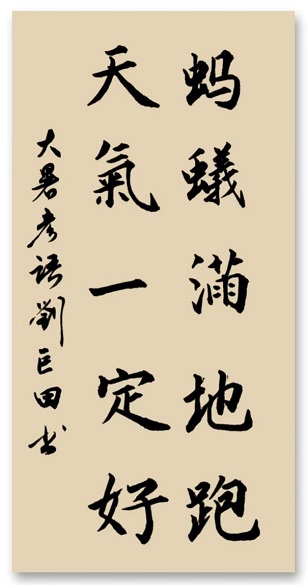 蚂蟻滿地跑
天氣一定好
大暑彦語劉巨田书